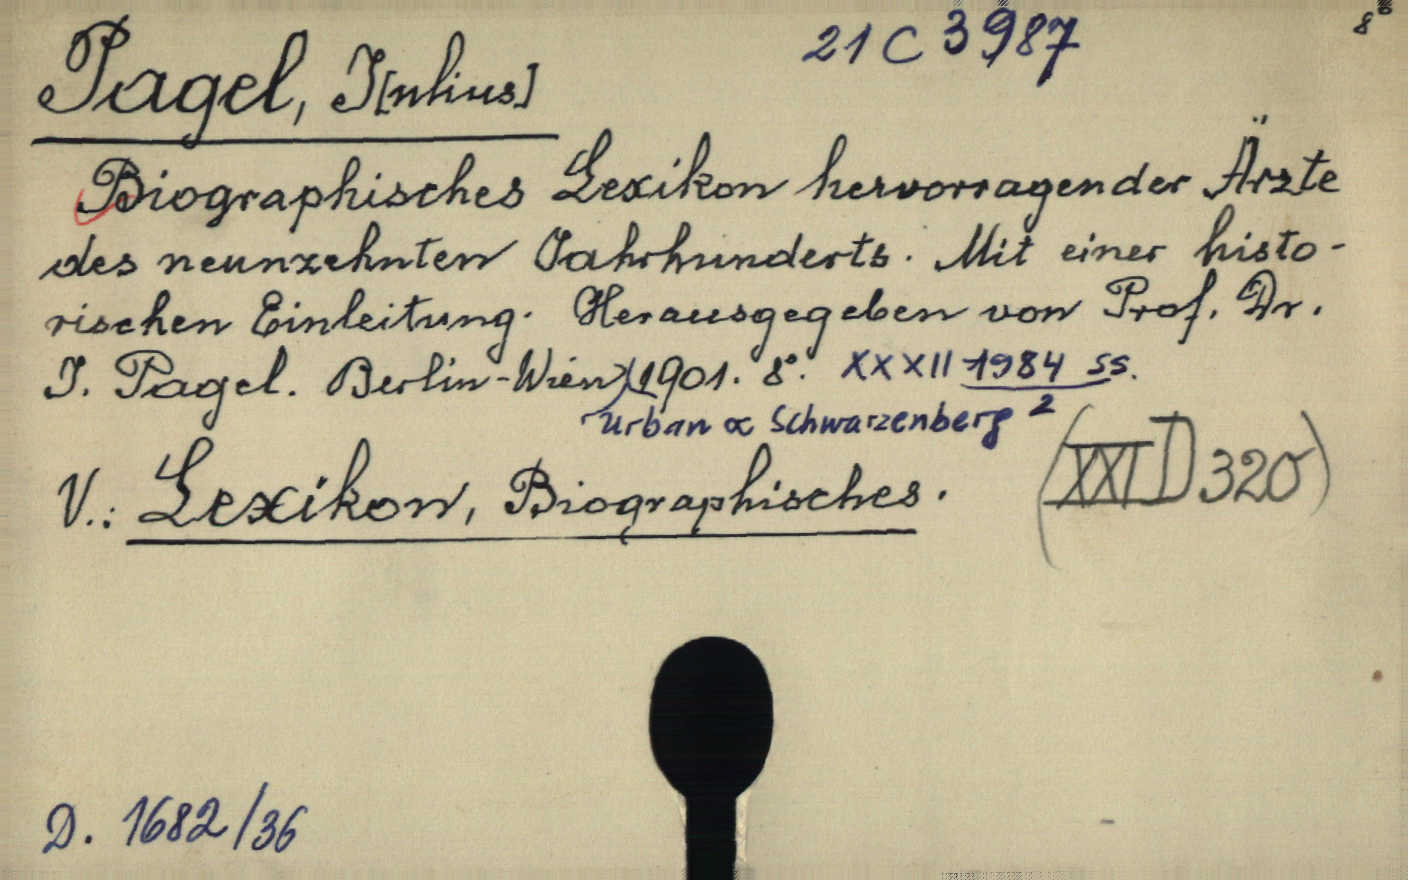 21 C 3987
8°
Pagel, J[ulius]
Biographisches Lexikon hervorragender Ärzte
des neunzehnten Jahrhunderts. Mit einer histo-
rischen Einleitung. Herausgegeben von Prof. Dr.
J. Pagel. Berlin-Wien, 1901. 8°. XXXII 1984 SS.
Urban & Schwarzenberg 2
(XXI D 320)
V.: Lexikon, Biographisches.
D. 1682/36